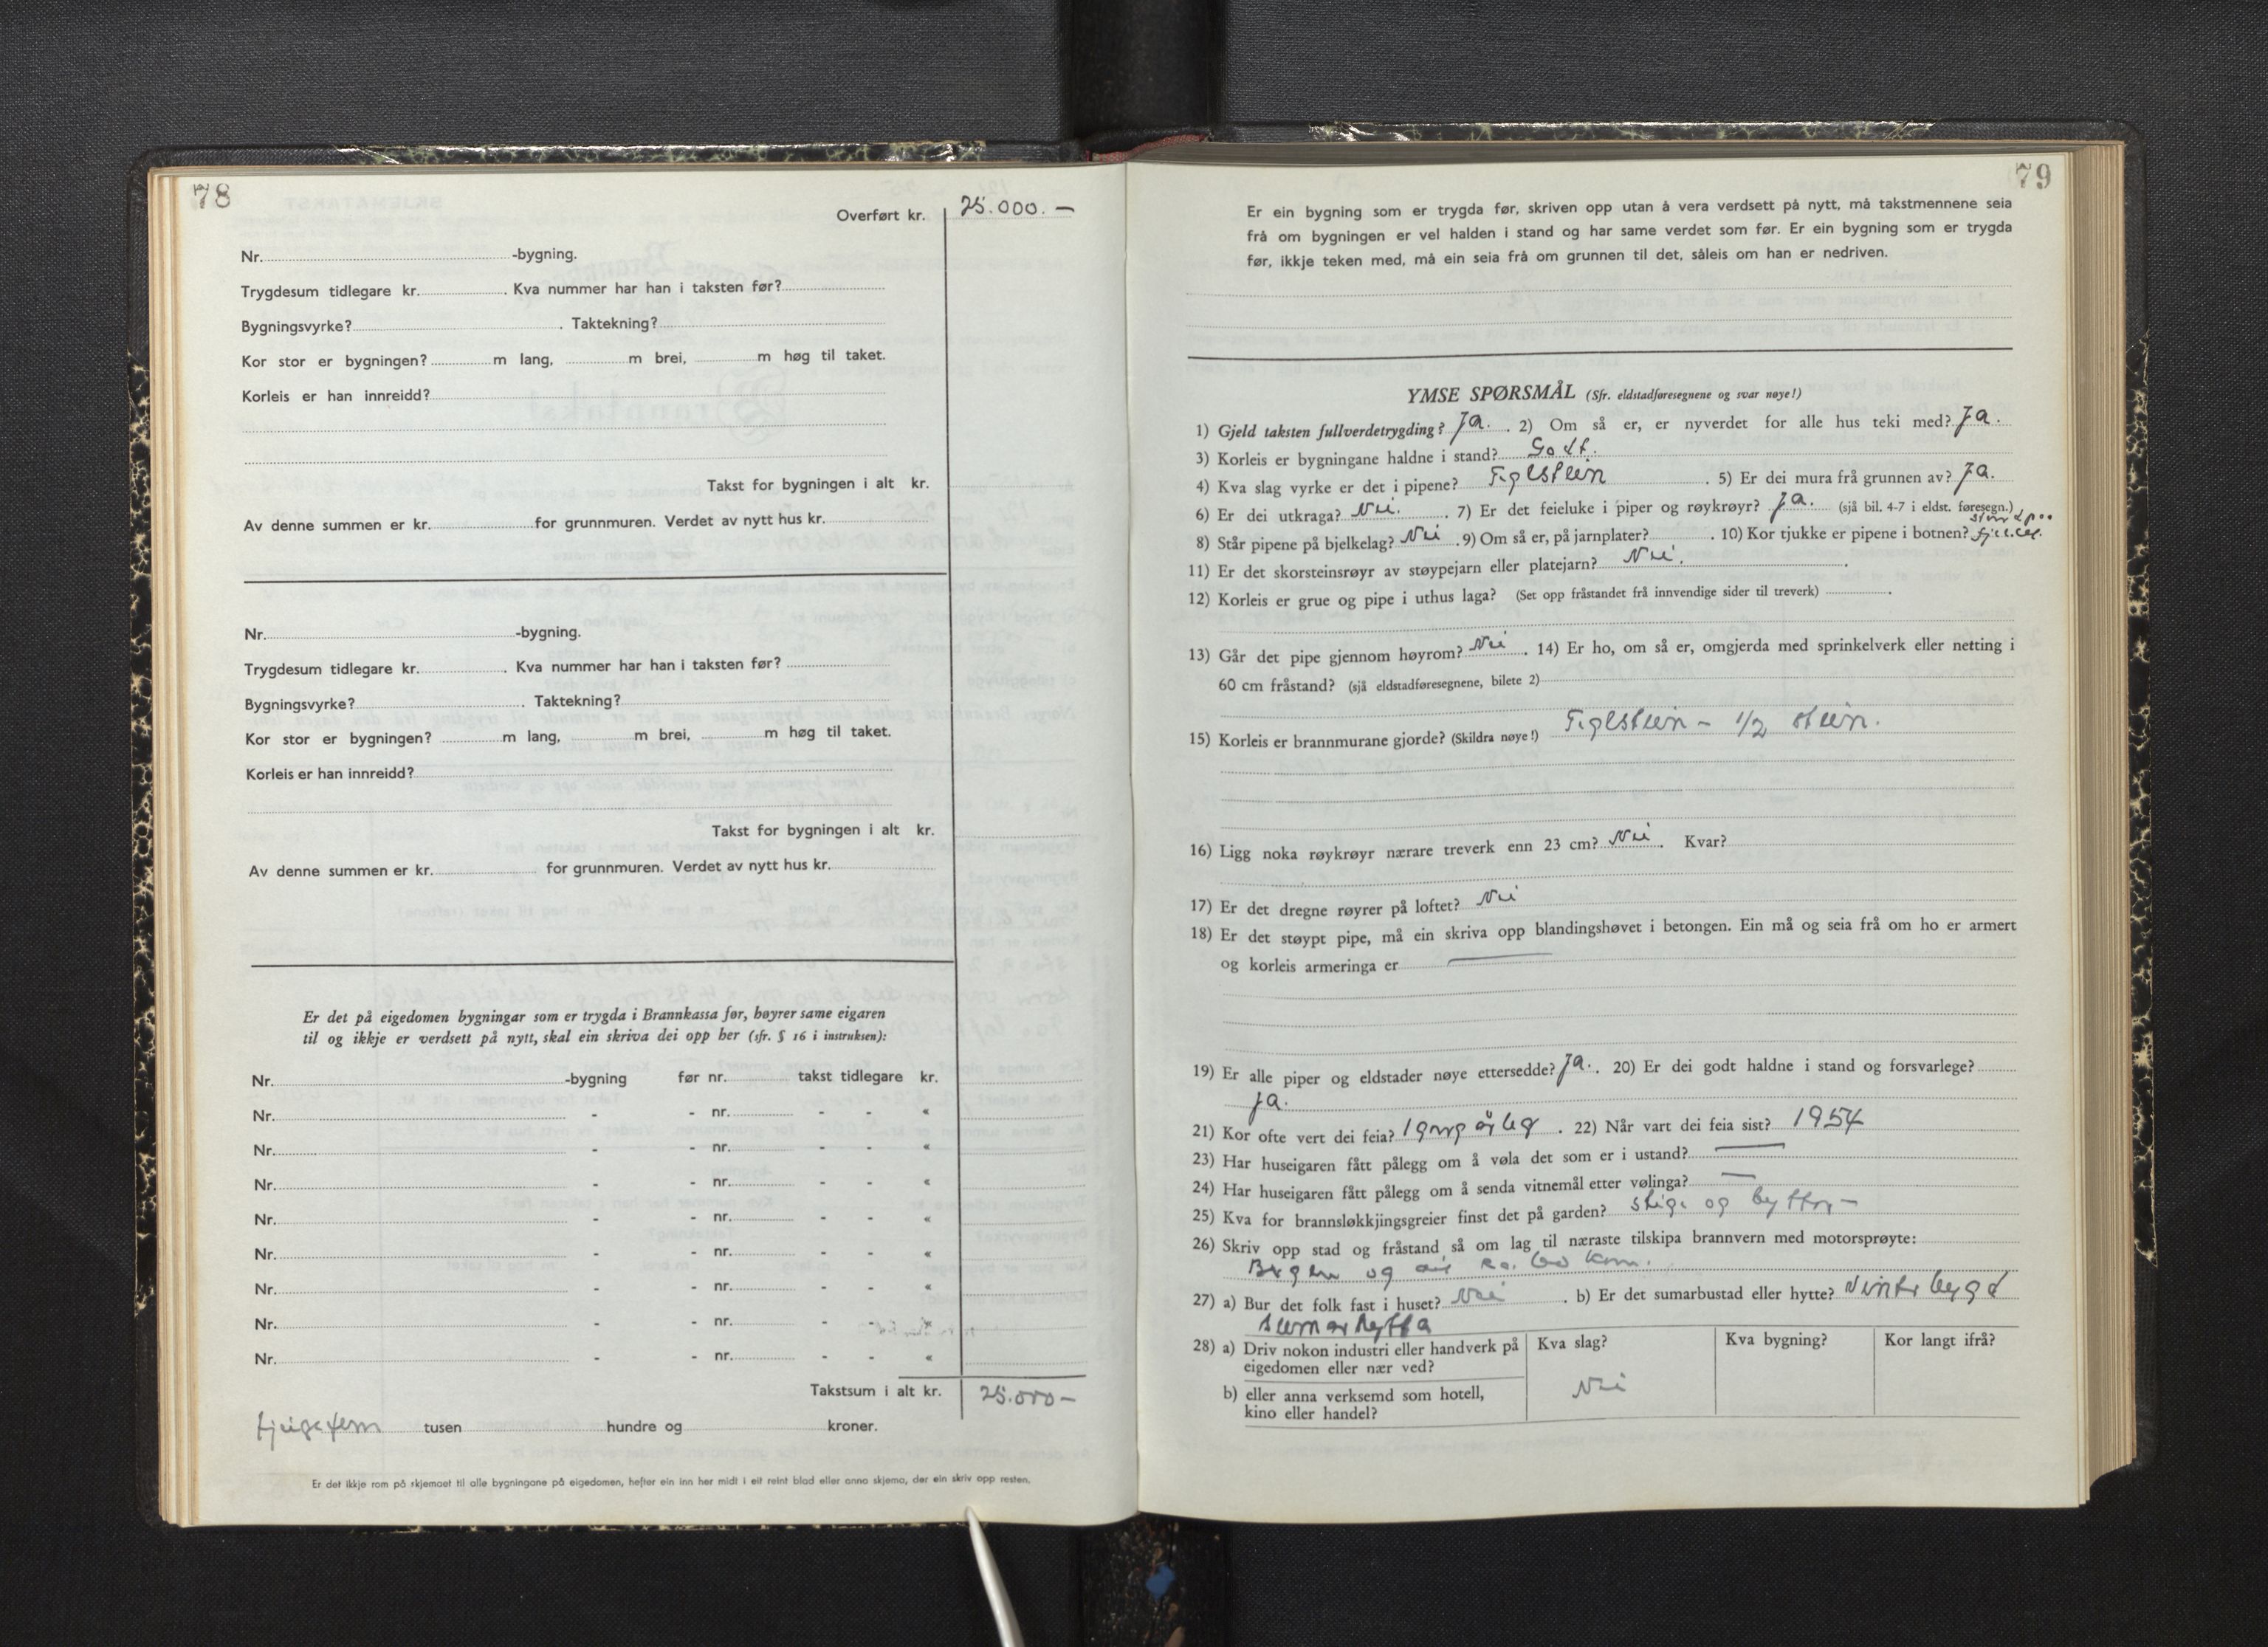 78
Overført kr. 25.000.—
Nr. -bygning.
Trygdesum tidlegare kr. . Kva nummer har han i taksten før?
Bygningsvyrke? . Taktekning?
Kor stor er bygningen? m lang, m brei, m høg til taket.
Korleis er han innreidd?
Takst for bygningen i alt kr.
Av denne summen er kr. for grunnmuren. Verdet av nytt hus kr.
Nr. -bygning.
Trygdesum tidlegare kr. . Kva nummer har han i taksten før?
Bygningsvyrke? . Taktekning?
Kor stor er bygningen? m lang, m brei, m høg til taket.
Korleis er han innreidd?
Takst for bygningen i alt kr.
Av denne summen er kr. for grunnmuren. Verdet av nytt hus kr.
Er det på eigedomen bygningar som er trygda i Brannkassa før, høyrer same eigaren
til og ikkje er verdsett på nytt, skal ein skriva dei opp her (sfr. § 16 i instruksen):
Nr. -bygning før nr. takst tidlegare kr.
Nr. - - nr. - - «
Nr. - - nr. - - «
Nr. - - nr. - - «
Nr. - - nr. - - «
Nr. - - nr. - - «
Nr. - - nr. - - «
Nr. - - nr. - - «
Nr. - - nr. - - «
Takstsum i alt kr. 25.000—
tjugefem tusen hundre og kroner.
Er det ikkje rom på skjemaet til alle bygningane på eigedomen, hefter ein inn her midt i eit reint blad eller anna skjema, der ein skriv opp resten.
79
Er ein bygning som er trygda før, skriven opp utan å vera verdsett på nytt, må takstmennene seia
frå om bygningen er vel halden i stand og har same verdet som før. Er ein bygning som er trygda
før, ikkje teken med, må ein seia frå om grunnen til det, såleis om han er nedriven.
YMSE SPØRSMÅL (Sfr. eldstadføresegnene og svar nøye!)
1) Gjeld taksten fullverdetrygding? Ja. . 2) Om så er, er nyverdet for alle hus teki med? Ja.
3) Korleis er bygningane haldne i stand? Godt.
4) Kva slag vyrke er det i pipene? Teglstein . 5) Er dei mura frå grunnen av? Ja.
6) Er dei utkraga? Nei. . 7) Er det feieluke i piper og røykrøyr? Ja. (sjå bil. 4-7 i eldst. føresegn.)
8) Står pipene på bjelkelag? Nei . 9) Om så er, på jarnplater? . 10) Kor tjukke er pipene i botnen?
11) Er det skorsteinsrøyr av støypejarn eller platejarn? Nei. .
12) Korleis er grue og pipe i uthus laga? (Set opp fråstandet frå innvendige sider til treverk) .
13) Går det pipe gjennom høyrom? Nei . 14) Er ho, om så er, omgjerda med sprinkelverk eller netting i
60 cm fråstand? (sjå eldstadføresegnene, bilete 2)
15) Korleis er brannmurane gjorde? (Skildra nøye!) Teglstein — 1/2 stein.
16) Ligg noka røykrøyr nærare treverk enn 23 cm? Nei . Kvar?
17) Er det dregne røyrer på loftet? Nei
18) Er det støypt pipe, må ein skriva opp blandingshøvet i betongen. Ein må og seia frå om ho er armert
og korleis armeringa er —
19) Er alle piper og eldstader nøye ettersedde? Ja. . 20) Er dei godt haldne i stand og forsvarlege?
Ja.
21) Kor ofte vert dei feia? 1 gang årleg . 22) Når vart dei feia sist? 1954
23) Har huseigaren fått pålegg om å vøla det som er i ustand? —
24) Har huseigaren fått pålegg om å senda vitnemål etter vølinga? —
25) Kva for brannsløkkjingsgreier finst det på garden? stige og bytter —
26) Skriv opp stad og fråstand så om lag til næraste tilskipa brannvern med motorsprøyte:
Bergen og km.
27) a) Bur det folk fast i huset? Nei . b) Er det sumarbustad eller hytte? Vinterbygd
sumarhytta
28) a) Driv nokon industri eller handverk på
eigedomen eller nær ved?
b) eller anna verksemd som hotell,
kino eller handel?
Kva slag?
Nei
Kva bygning?
Kor langt ifrå?